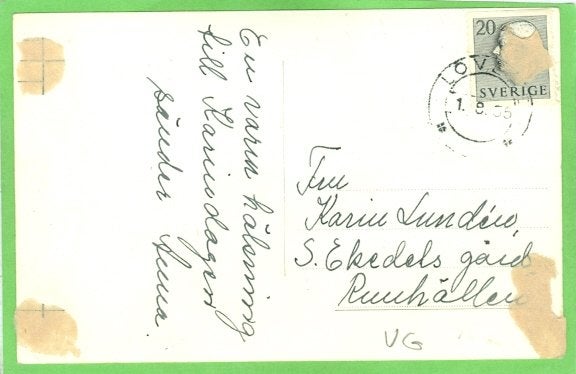 En varm hälsning
till Karindagen
sänder Anna.
20
SVERIGE
LÖV
1. 8. 56
Fru
Karin Lundén,
S. Ekedels gård
Runhällen
VG